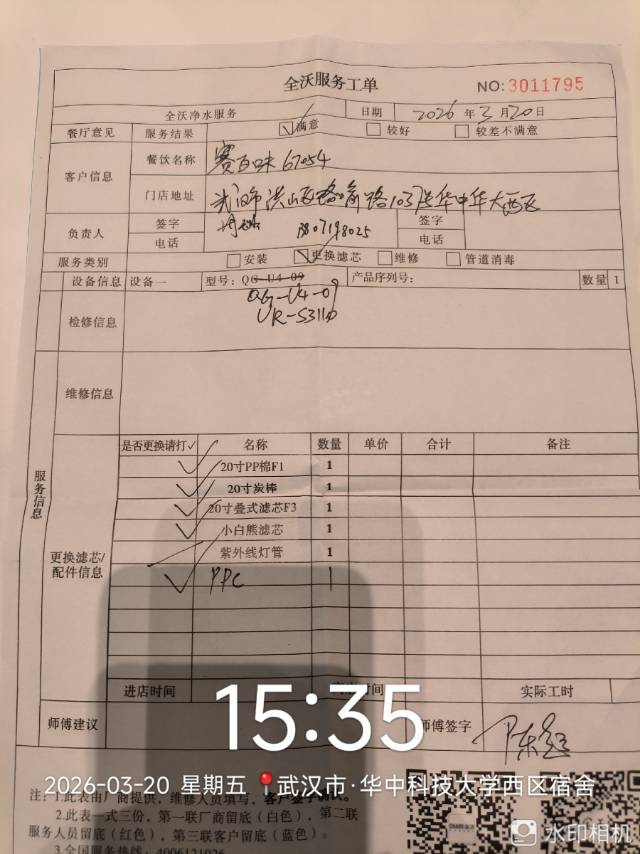 全沃服务工单
NO:3011795
全沃净水服务 日期 2026年3月20日
餐厅意见 服务结果 满意 较好 较差不满意
客户信息 餐饮名称 赛百味 67054
门店地址 武汉市洪山区珞喻路1037号华中华大西区
负责人 签字 签字
电话 电话
服务类别 安装 更换滤芯 维修 管道消毒
设备信息 设备一 型号: QG-U4-09 产品序列号: 数量 1
QG-U4-09
检修信息
维修信息
服务信息
是否更换请打✓ 名称 数量 单价 合计 备注
✓ 20寸PP棉F1 1
✓ 20寸炭棒 1
✓ 20寸叠式滤芯F3 1
✓ 小白熊滤芯 1
紫外线灯管 1
更换滤芯/
配件信息
✓ PPC 1
进店时间 时间 实际工时
15:35
师傅建议 师傅签字
2026-03-20 星期五 武汉市·华中科技大学西区宿舍
注:1.此表由厂商提供,维修人员填写,客户签字确认。
2.此表一式三份,第一联厂商留底(白色),第二联
服务人员留底(红色),第三联客户留底(蓝色)。
3.全国服务热线:4006121026
水印相机